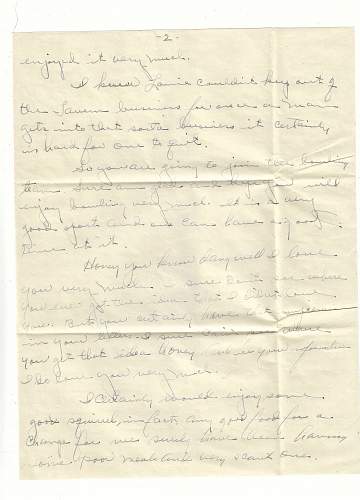 -2-
enjoyed it very much.
I knew couldn't keep out of
the Tavern business for once a man
gets into that sorta business it certainly
is hard for one to quit.
So you are going to join the bowling
team. Sure am glad and hope you will
enjoy bowling very much. It is a very
good sport and one can have a good
time at it.
Honey you know darn well I love
you very much. I sure don't see where
you ever got the idea that I didn't love
you. But you certainly have it
in your letter. I sure
you got that idea Honey for your information
I do love you very much.
I certainly would enjoy some
good squirrel, in fact, any good food for a
change for we surely have been having
some poor meals and very scant ones.